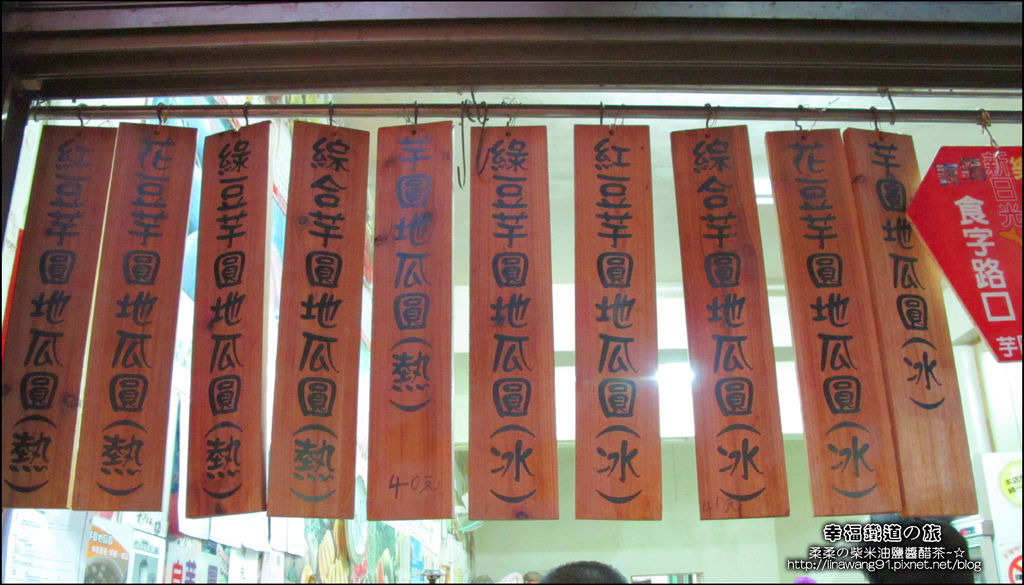 紅豆芋圓地瓜圓(熱)
花豆芋圓地瓜圓(熱)
綠豆芋圓地瓜圓(熱)
綜合芋圓地瓜圓(熱)
芋圓地瓜圓(熱)
40元
綠豆芋圓地瓜圓(冰)
紅豆芋圓地瓜圓(冰)
綜合芋圓地瓜圓(冰)
45元
花豆芋圓地瓜圓(冰)
芋圓地瓜圓(冰)
新日光
食字路口
芋
幸福鐵道の旅
柔柔の柴米油鹽醬醋茶~☆
http://linawang91.pixnet.net/blog